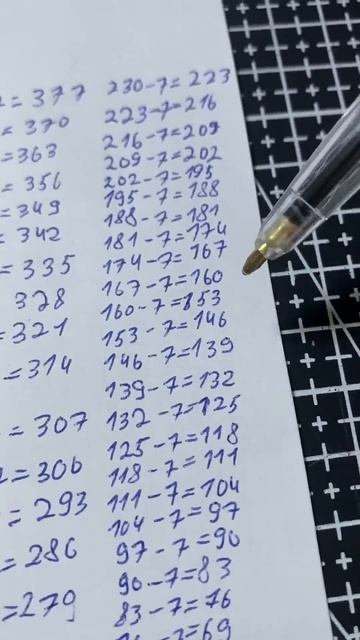 = 377
= 370
= 363
= 356
= 349
= 342
= 335
328
= 321
= 314
= 307
= 300
= 293
= 286
= 279
230-7=223
223-7=216
216-7=209
209-7=202
202-7=195
195-7=188
188-7=181
181-7=174
174-7=167
167-7=160
160-7=153
153-7=146
146-7=139
139-7=132
132-7=125
125-7=118
118-7=111
111-7=104
104-7=97
97-7=90
90-7=83
83-7=76
-7=69